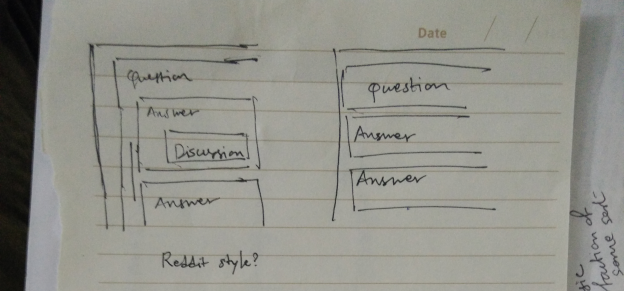 Date / /
Question
Answer
Discussion
Answer
Reddit style?
Question
Answer
Answer
some